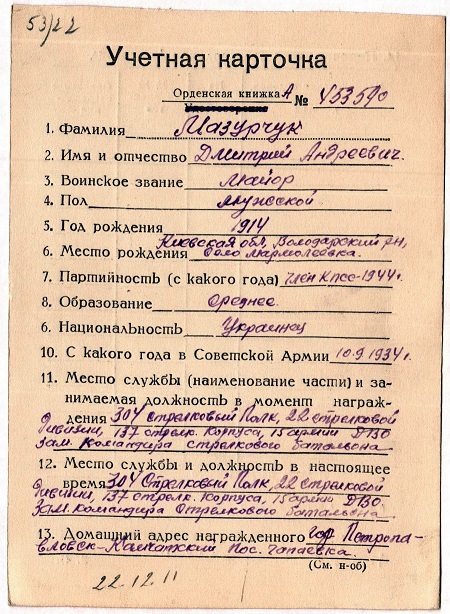 53/22
Учетная карточка
Орденская книжка А № 453590
Удостоверение
1. Фамилия Мазурчук
2. Имя и отчество Дмитрий Андреевич.
3. Воинское звание Майор
4. Пол мужской
5. Год рождения 1914
Киевская обл, Володарский рн,
6. Место рождения село Мармолеевка.
7. Партийность (с какого года) член КПСС-1944г.
8. Образование среднее.
6. Национальность Украинец
10. С какого года в Советской Армии 10.9 1934г.
11. Место службы (наименование части) и за-
нимаемая должность в момент награж-
дения 304 стрелковый Полк, 22 стрелковой
Дивизии, 137 стрелк. Корпуса, 15 армии ДВО
Зам. командира стрелкового батальона
12. Место службы и должность в настоящее
время 304 Стрелковый Полк, 22 стрелковой
Дивизии, 137 стрелк. Корпуса, 15 армии ДВО
Зам. командира Стрелкового батальона
13. Домашний адрес награжденного гор Петропа-
вловск-Камчатский Пос. Чапаевка.
(См. н-об)
22.12.11